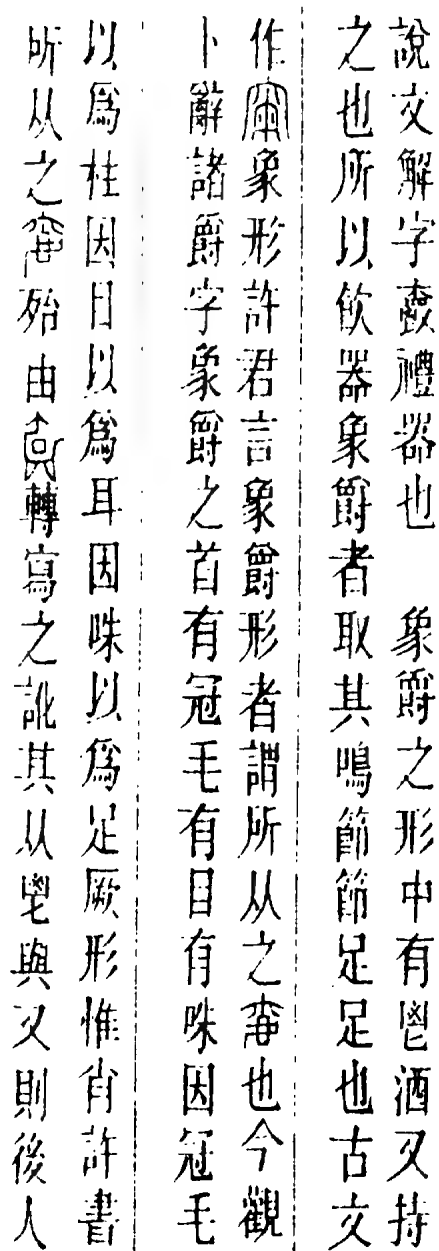 說文解字𩰥禮器也　象爵之形中有鬯酒又持
之也所以飲器象爵者取其鳴節節足足也古文
作象形許君言象爵形者謂所从之也今觀
卜辭諸爵字象爵之首有冠毛有目有咮因冠毛
以爲柱因目以爲耳因咮以爲足厥形惟肖許書
所从之殆由轉寫之訛其从鬯與又則後人